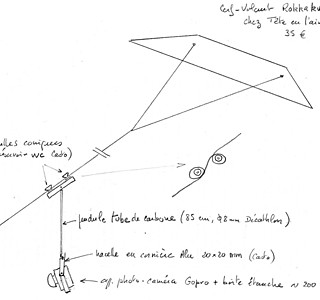 Cerf-Volant Rokkaku
chez Tête en l'air
35 €
coniques
(réservoir WC Casto)
pendule tube de carbone (85 cm, φ 8mm Décathlon)
nacelle en cornière Alu 20x20 mm (Casto)
app. photo-caméra Gopro + boîte étanche ≈ 200